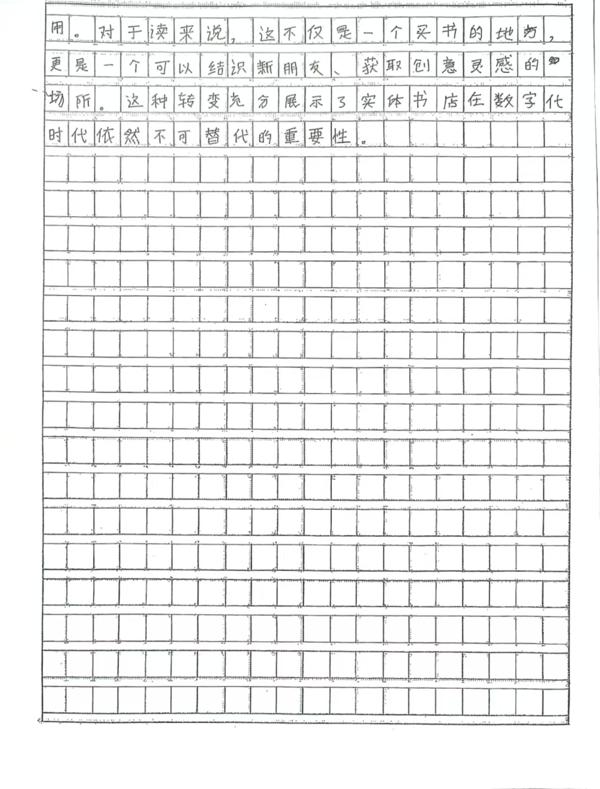 用。对于读来说，这不仅是一个买书的地方，
更是一个可以结识新朋友、获取创意灵感的
场所。这种转变充分展示了实体书店在数字化
时代依然不可替代的重要性。